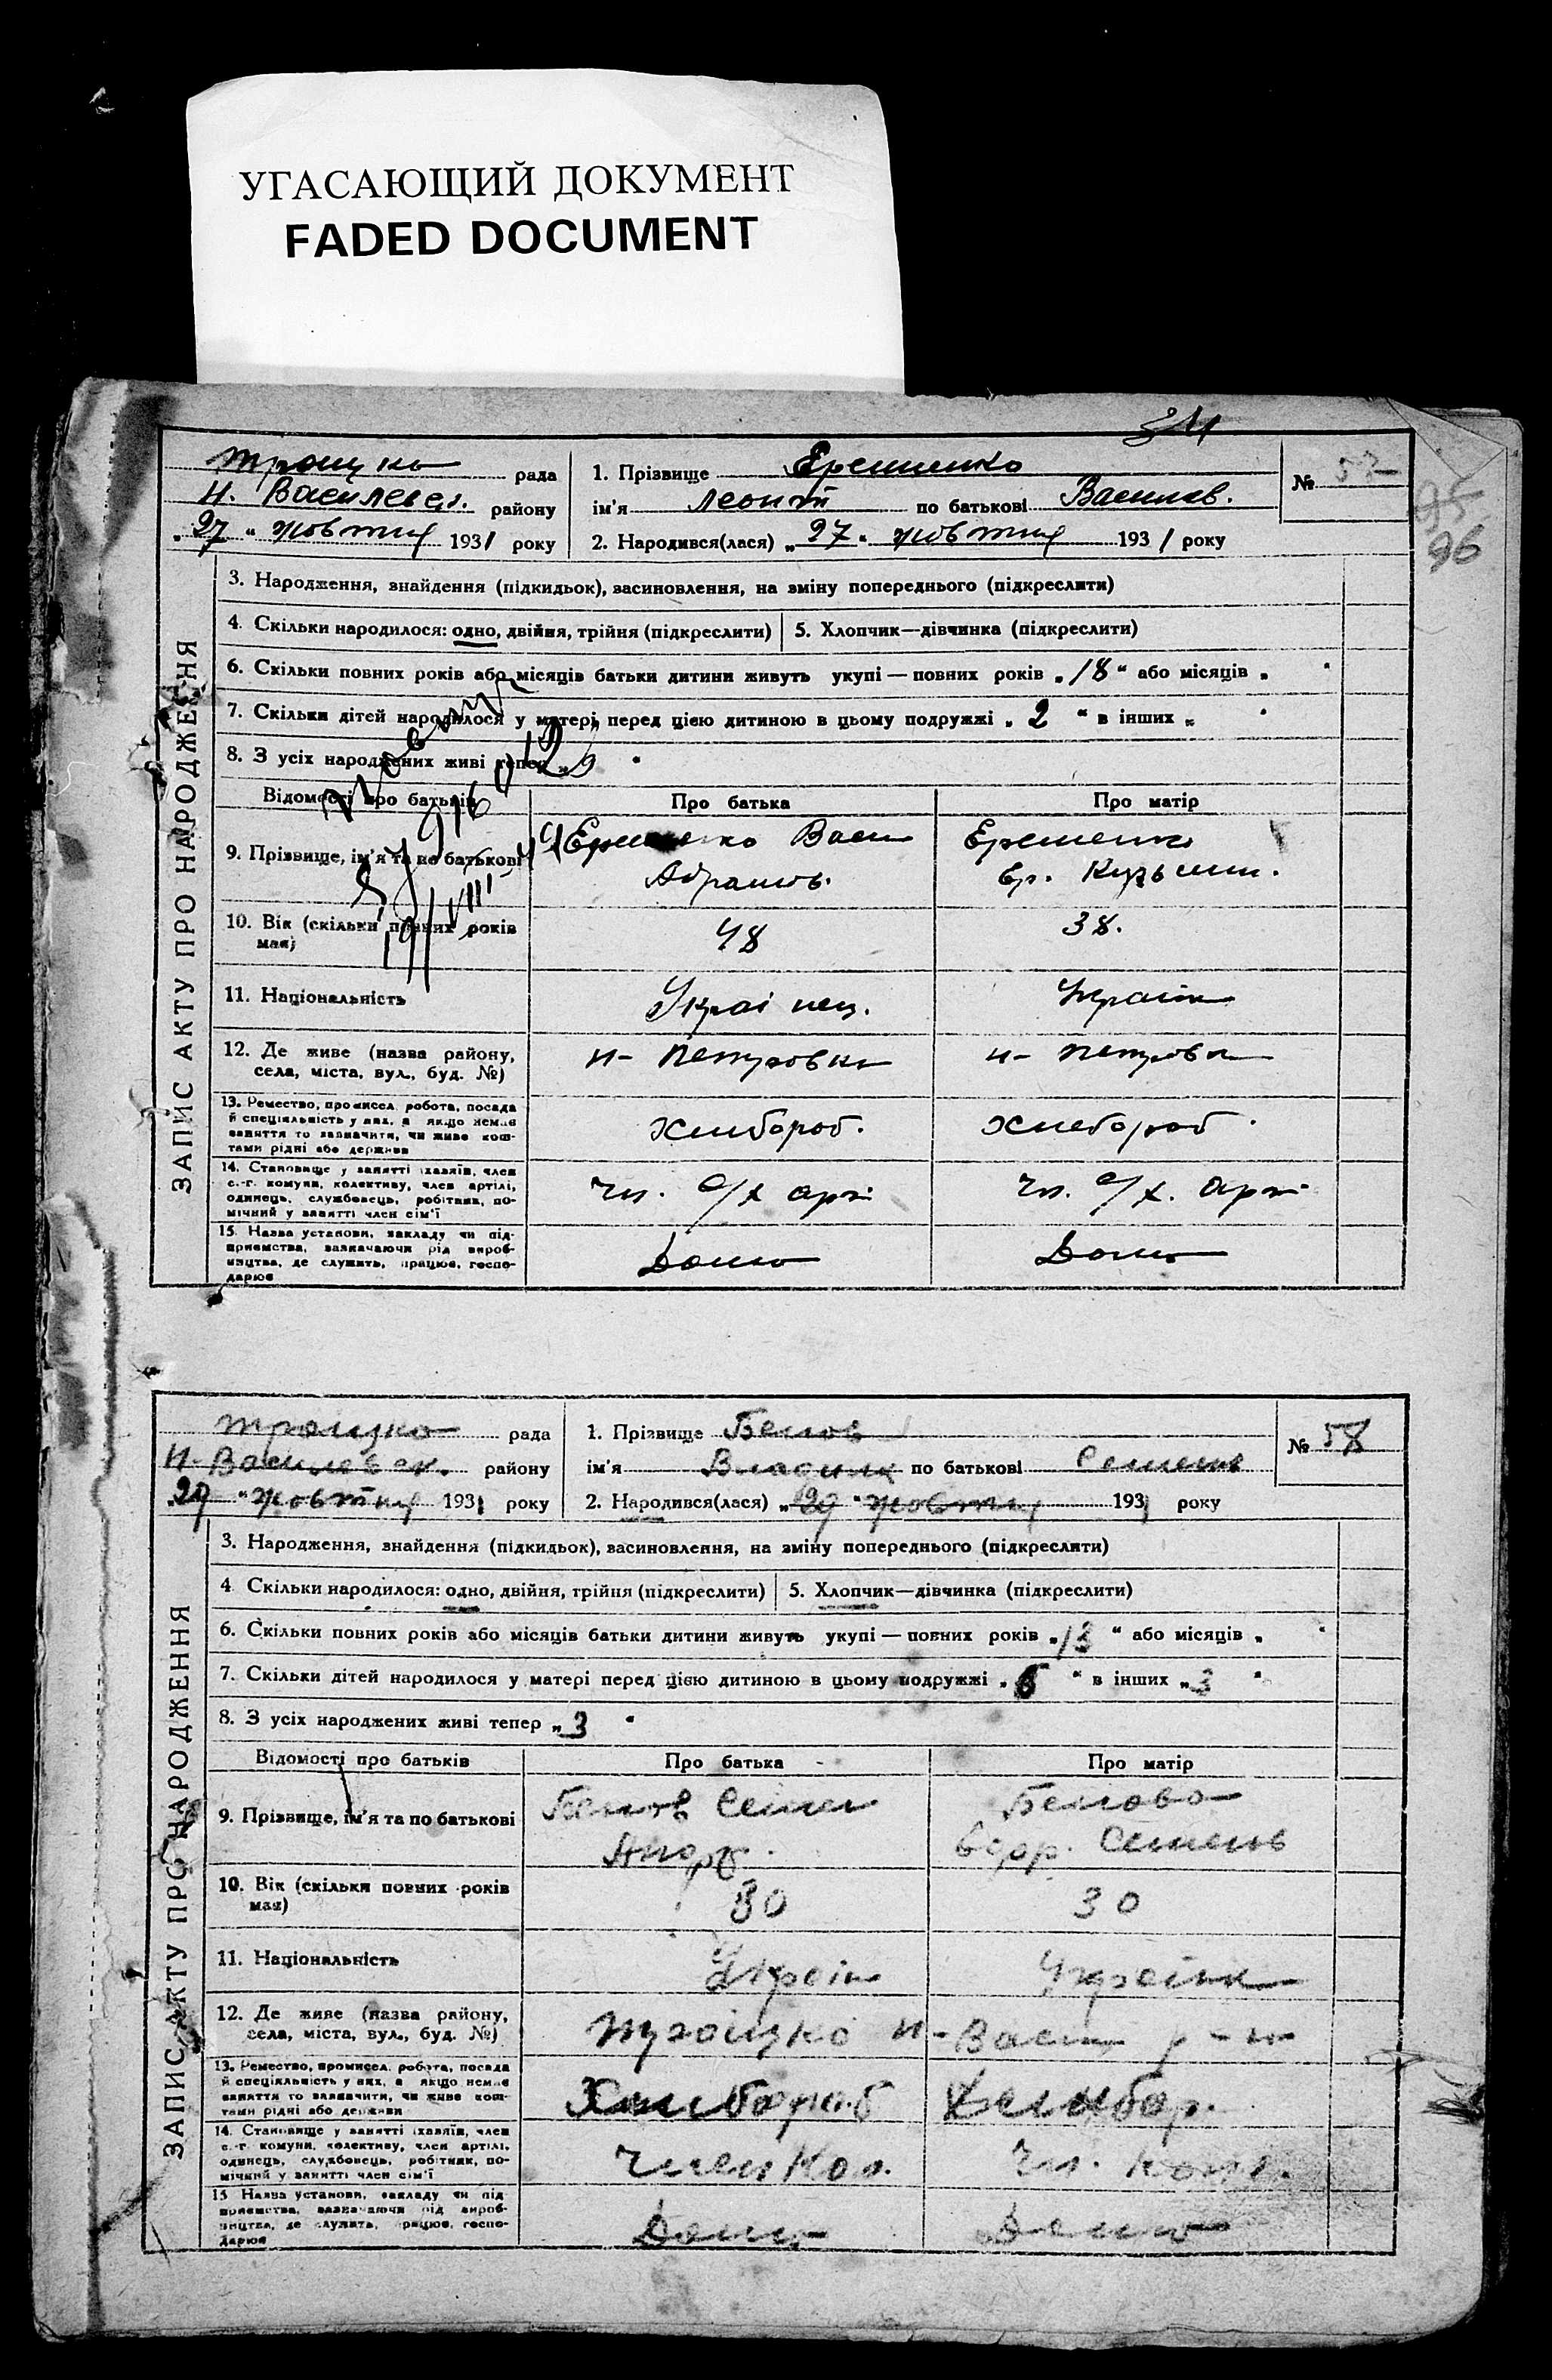 УГАСАЮЩИЙ ДОКУМЕНТ
FADED DOCUMENT
ЗАПИС АКТУ ПРО НАРОДЖЕННЯ
рада
Н. Василевск. району
„27“ жовтня 1931 року
1. Прізвище Ерешенко
ім'я Леонт по батькові Василев.
2. Народився(лася) „27“ жовтня 1931 року
№ 57
96
3. Народження, знайдення (підкидьок), васиновлення, на зміну попереднього (підкреслити)
4. Скільки народилося: одно, двійня, трійня (підкреслити)
5. Хлопчик—дівчинка (підкреслити)
6. Скільки повних років або місяців батьки дитини живуть укупі — повних років „18“ або місяців „ “
7. Скільки дітей народилося у матері перед цією дитиною в цьому подружжі „2“ в інших „ “
8. З усіх народжених живі тепер „
Відомості про батьків
Про батька
Про матір
9. Прізвище, ім'я та по батькові
Ерешенко Васи
Абрамов.
Ерешенко
Кузьмин.
10. Вік (скільки повних років
має)
48
38.
11. Національність
Украінец.
Украін
12. Де живе (назва району,
села, міста, вул., буд. №)
н- Петровка
н- Петровка
13. Ремество, промисел, робота, посада
й спеціяльність у них, а якщо немає
заняття то зазначити, чи живе кош-
тами рідні або держави
хлибороб.
хлебороб.
14. Становище у занятті (хазяїн, член
с.-г. комуни, колективу, член артілі,
одинець, службовець, робітник, по-
мічний у занятті член сім'ї
чл. с/х арт
чл. с/х. арт
15. Назва установи, закладу чи під-
приємства, зазначаючи рід вироб-
ництва, де служить, працює, госпо-
дарює
Дома
Дома
ЗАПИС АКТУ ПРО НАРОДЖЕННЯ
Троицко рада
Н-Василевск. району
„29“ жовтня 1931 року
1. Прізвище Белов
ім'я Владим по батькові Семенов
2. Народився(лася) „29“ жовтня 1931 року
№ 58
3. Народження, знайдення (підкидьок), васиновлення, на зміну попереднього (підкреслити)
4. Скільки народилося: одно, двійня, трійня (підкреслити)
5. Хлопчик—дівчинка (підкреслити)
6. Скільки повних років або місяців батьки дитини живуть укупі — повних років „13“ або місяців „ “
7. Скільки дітей народилося у матері перед цією дитиною в цьому подружжі „6“ в інших „3“
8. З усіх народжених живі тепер „3“
Відомості про батьків
Про батька
Про матір
9. Прізвище, ім'я та по батькові
Белов Семен
Белова
Семенов
10. Вік (скільки повних років
має)
30
30
11. Національність
Украін
Украінка
12. Де живе (назва району,
села, міста, вул., буд. №)
Троіцко н-Васил р-н
13. Ремество, промисел, робота, посада
й спеціяльність у них, а якщо немає
заняття то зазначити, чи живе кош-
тами рідні або держави
Хлибороб
Хлибор.
14. Становище у занятті (хазяїн, член
с.-г. комуни, колективу, член артілі,
одинець, службовець, робітник, по-
мічний у занятті член сім'ї
Член Кол.
Чл. Кол.
15. Назва установи, закладу чи під-
приємства, зазначаючи рід вироб-
ництва, де служить, працює, госпо-
дарює
Дома
Дома